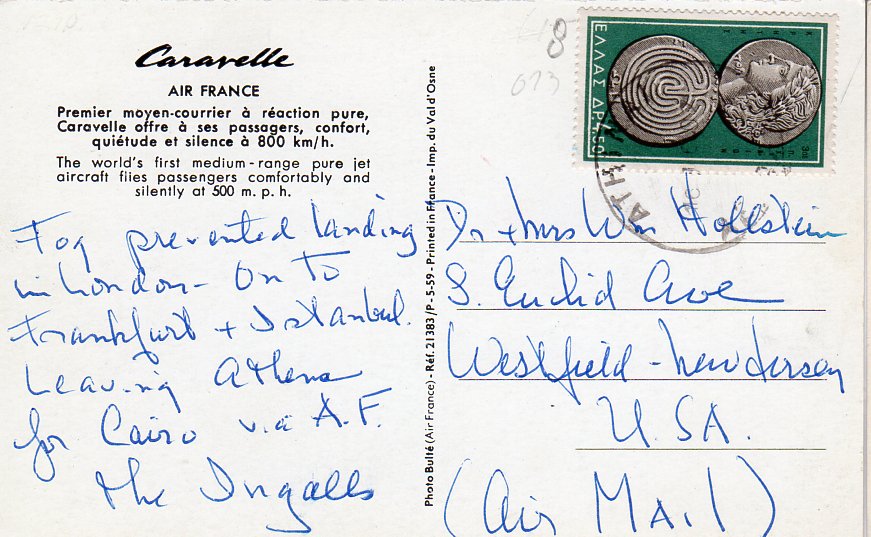 Caravelle
AIR FRANCE
Premier moyen-courrier à réaction pure,
Caravelle offre à ses passagers, confort,
quiétude et silence à 800 km/h.
The world's first medium-range pure jet
aircraft flies passengers comfortably and
silently at 500 m. p. h.
Fog prevented landing
in London - On to
Frankfurt + Istanbul.
Leaving Athens
for Cairo via A.F.
The Ingalls
Photo Bulté (Air France) - Réf. 21383/P - 5-59 - Printed in France - Imp. du Val d'Osne
8
013
ΕΛΛΑΣ ΔΡ.
Dr + Mrs Wm Hollstein
S. Euclid Ave
Westfield - New Jersey
U.S.A.
(Air Mail)